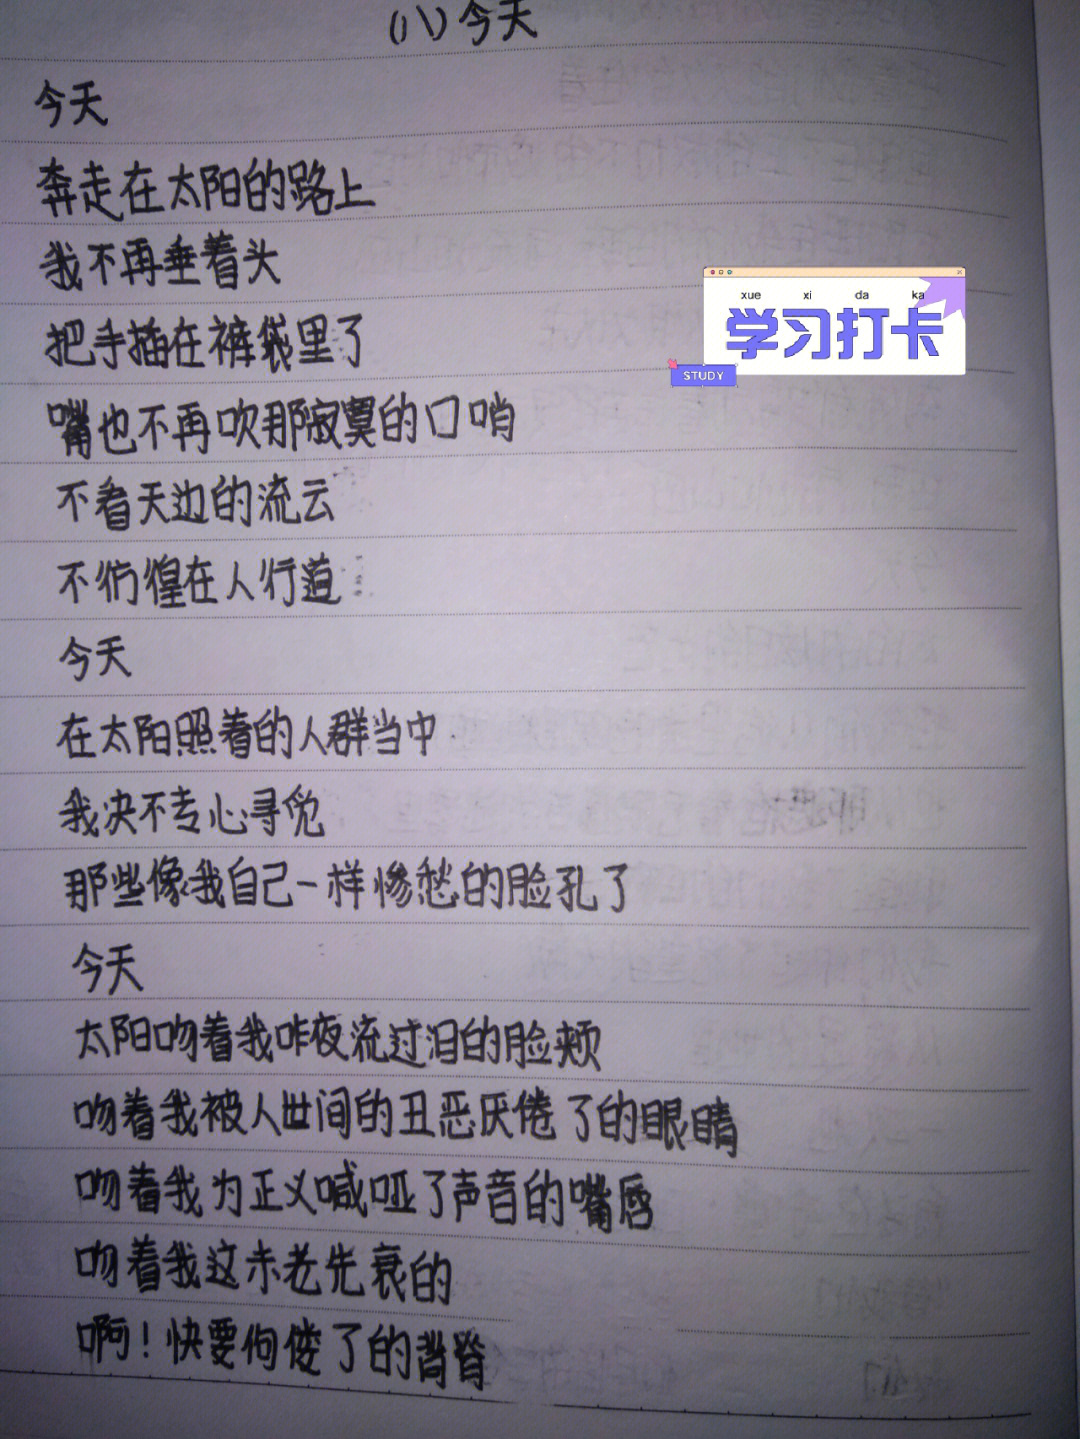 (八)今天
今天
奔走在太阳的路上
我不再垂着头
把手插在裤袋里了
嘴也不再吹那寂寞的口哨
不看天边的流云
不彷徨在人行道
今天
在太阳照着的人群当中
我决不专心寻觅
那些像我自己一样惨愁的脸孔了
今天
太阳吻着我昨夜流过泪的脸颊
吻着我被人世间的丑恶厌倦了的眼睛
吻着我为正义喊哑了声音的嘴唇
吻着我这未老先衰的
啊！快要佝偻了的背脊
xue xi da ka
学习打卡
STUDY